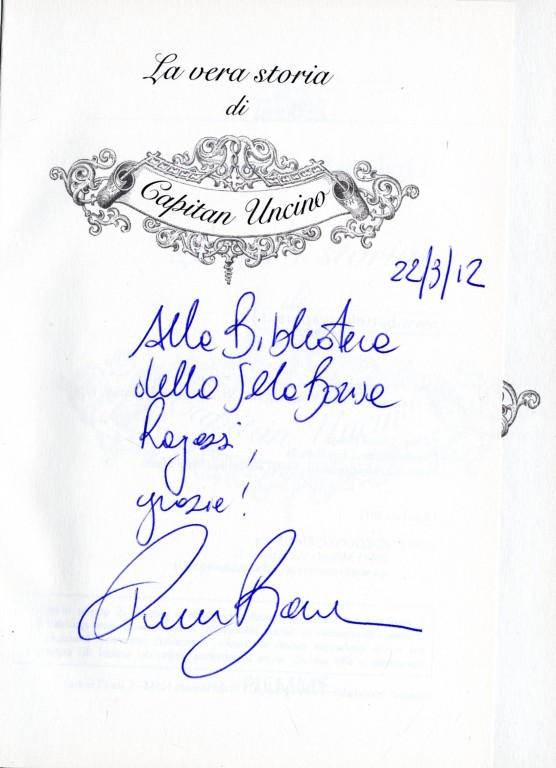 La vera storia
di
Capitan Uncino
22/3/12
Alla Biblioteca
della Sala Borsa
Ragazzi,
grazie!